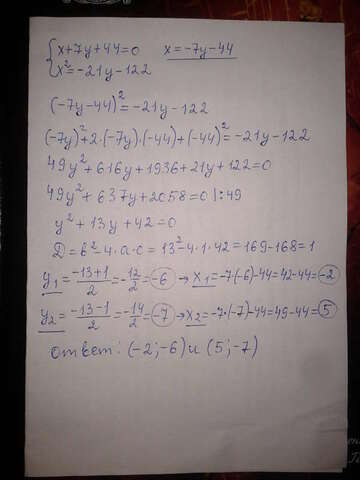 {x+7y+44=0 x=-7y-44
x²=-21y-122
(-7y-44)²=-21y-122
(-7y)²+2·(-7y)·(-44)+(-44)²=-21y-122
49y²+616y+1936+21y+122=0
49y²+637y+2058=0 |:49
y²+13y+42=0
D=b²-4·a·c=13²-4·1·42=169-168=1
y₁=(-13+1)/2=-12/2=-6 → x₁=-7·(-6)-44=42-44=-2
y₂=(-13-1)/2=-14/2=-7 → x₂=-7·(-7)-44=49-44=5
ответ: (-2;-6) и (5;-7)